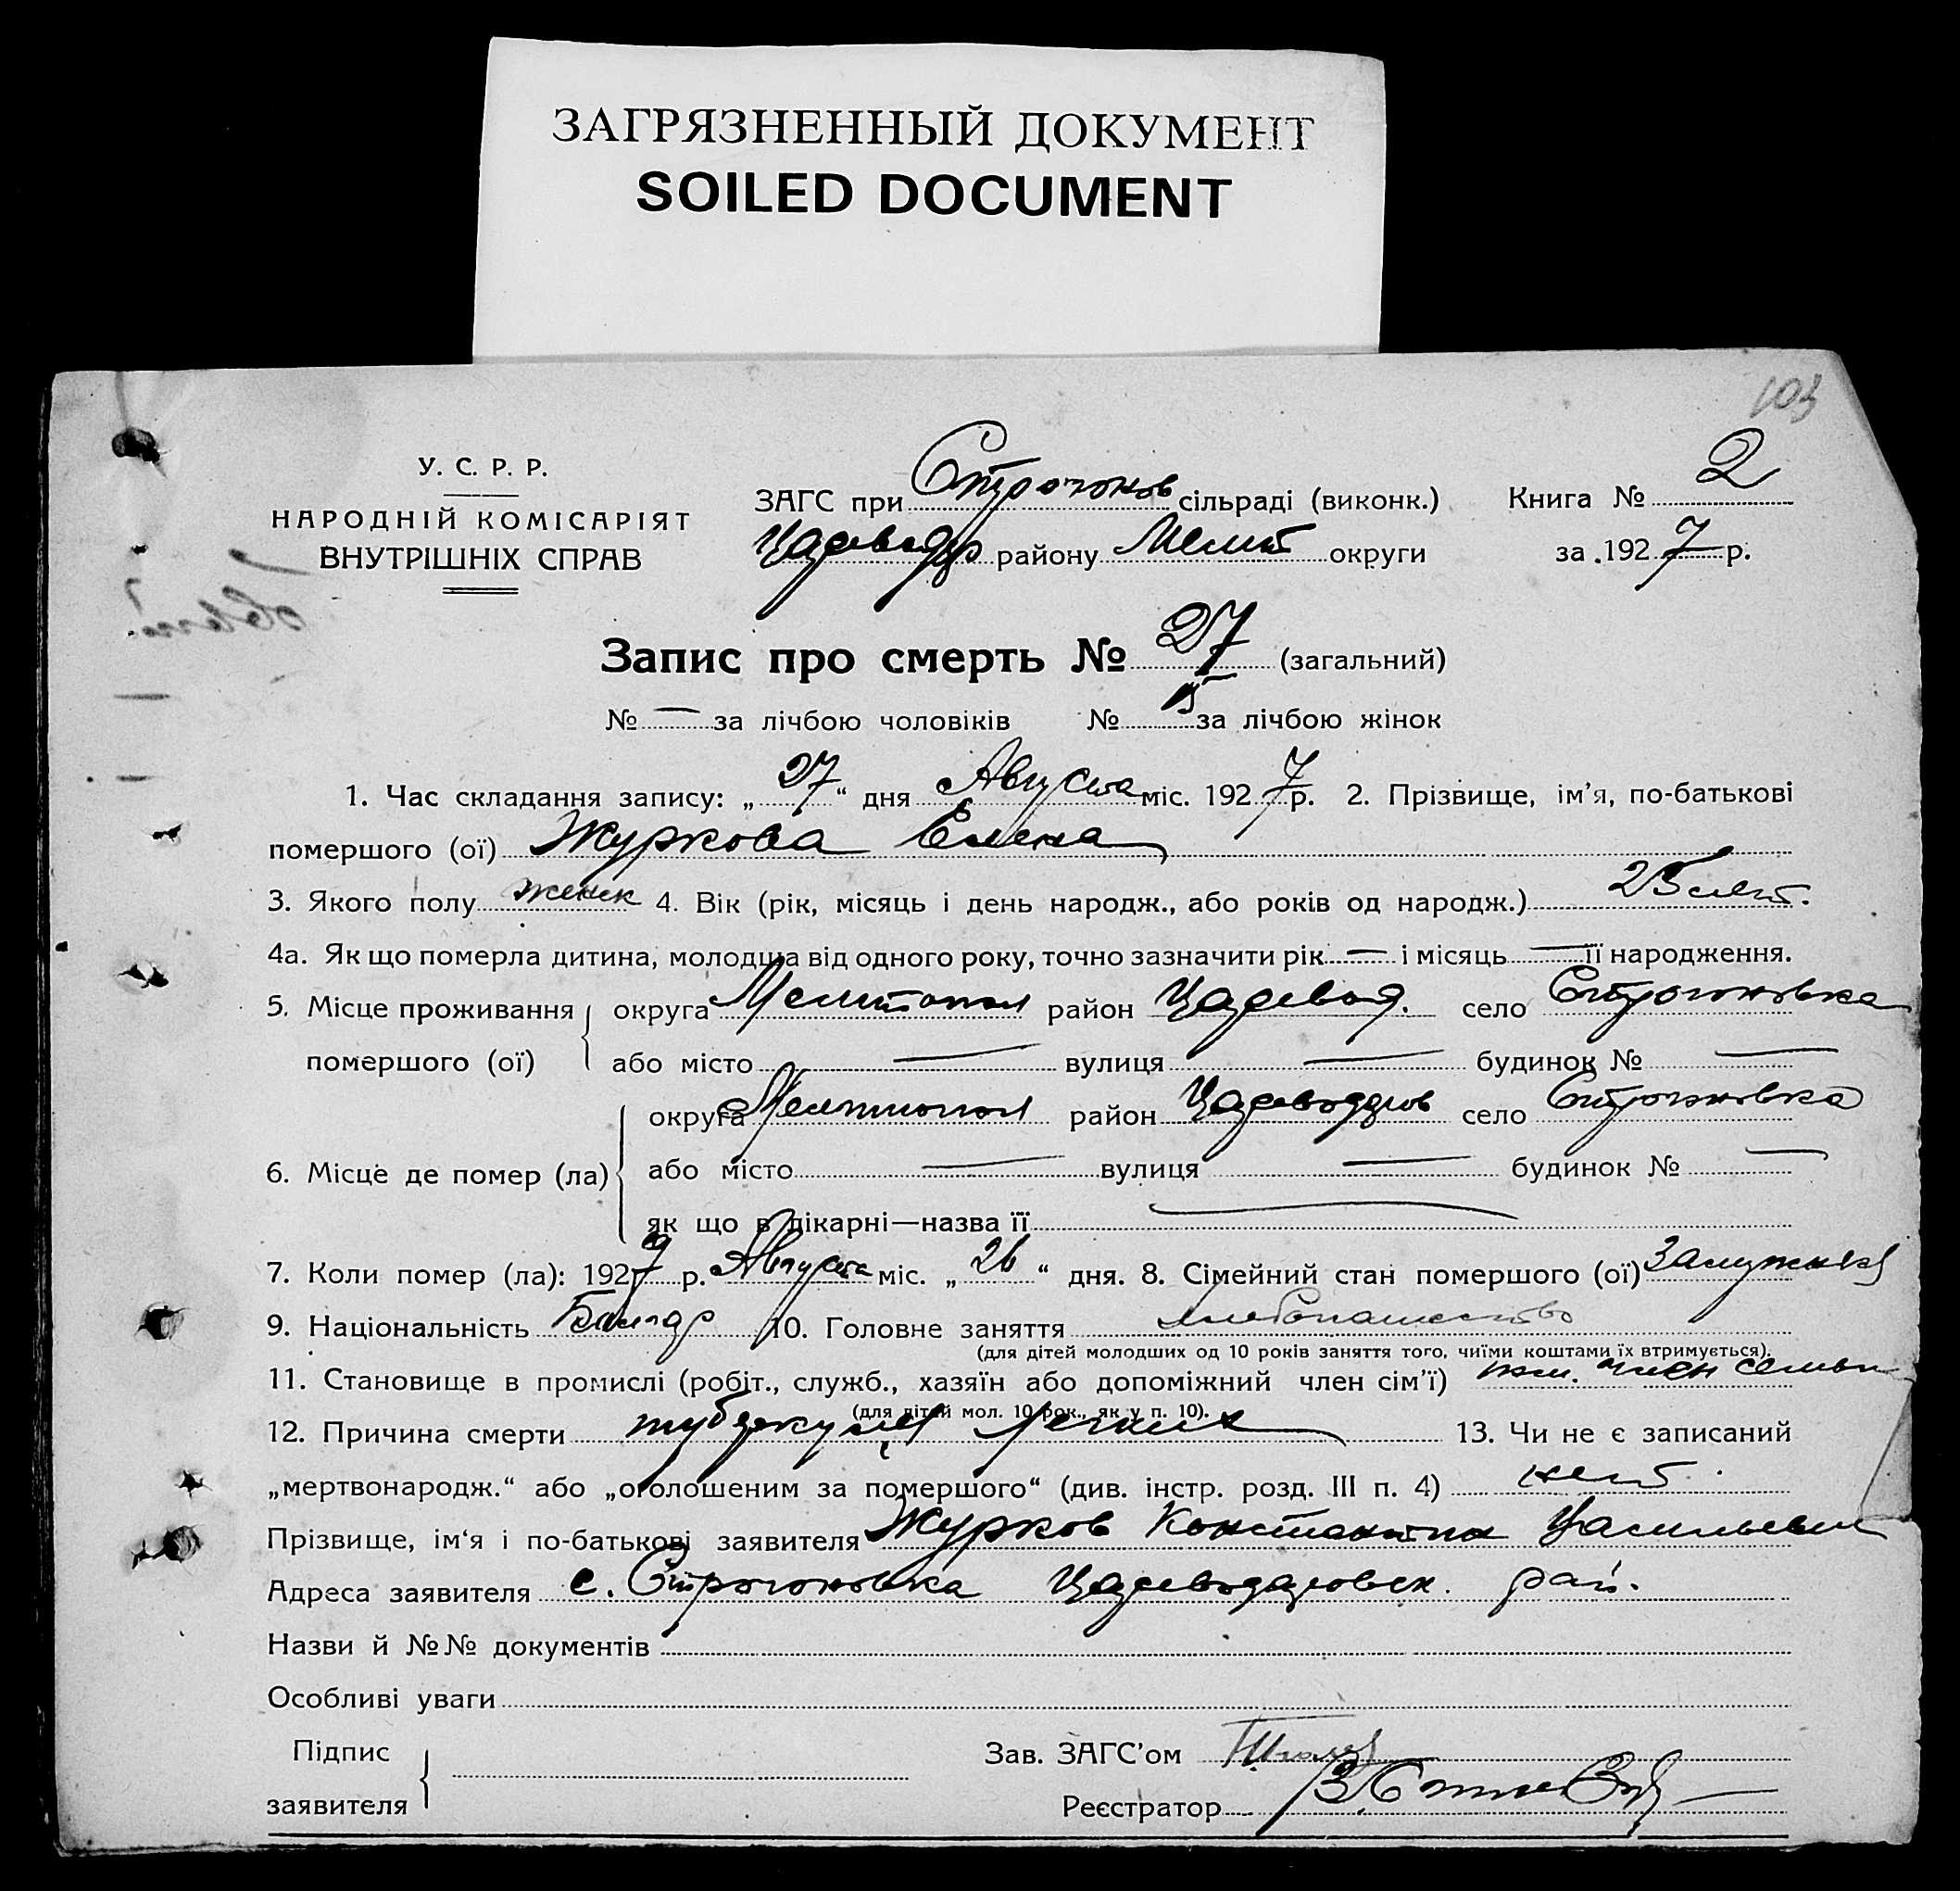 ЗАГРЯЗНЕННЫЙ ДОКУМЕНТ
SOILED DOCUMENT
103
У. С. Р. Р.
НАРОДНІЙ КОМІСАРІЯТ
ВНУТРІШНІХ СПРАВ
ЗАГС при Строгонов сільраді (виконк.) Книга № 2
району Мелит округи за 1927 р.
Запис про смерть № 27 (загальний)
№ — за лічбою чоловіків № 15 за лічбою жінок
1. Час складання запису: „27“ дня Августа міс. 1927 р. 2. Прізвище, ім’я, по-батькові
помершого (ої) Журкова Елена
3. Якого полу женск 4. Вік (рік, місяць і день народж., або років од народж.) 25 лет.
4а. Як що померла дитина, молодша від одного року, точно зазначити рік — і місяць — її народження.
5. Місце проживання помершого (ої) округа Мелитопол район Царевод. село Строгоновка
або місто — вулиця — будинок № —
6. Місце де помер (ла) округа Мелитопол район Цареводаров село Строгоновка
або місто — вулиця — будинок № —
як що в лікарні—назва її —
7. Коли помер (ла): 1927 р. Августа міс. „26“ дня. 8. Сімейний стан помершого (ої) Замужняя
9. Національність Болгар 10. Головне заняття хлебопашество
(для дітей молодших од 10 років заняття того, чиїми коштами їх втримується).
11. Становище в промислі (робіт., служб., хазяїн або допоміжний член сім’ї) член семьи
(для дітей мол. 10 рок., як у п. 10).
12. Причина смерти туберкулез легких 13. Чи не є записаний
„мертвонародж.“ або „оголошеним за помершого“ (див. інстр. розд. III п. 4) нет
Прізвище, ім‘я і по-батькові заявителя Журков Константин Васильевич
Адреса заявителя с. Строгоновка Цареводаровск. рай.
Назви й №№ документів
Особливі уваги
Підпис
заявителя
Зав. ЗАГС’ом
Реєстратор